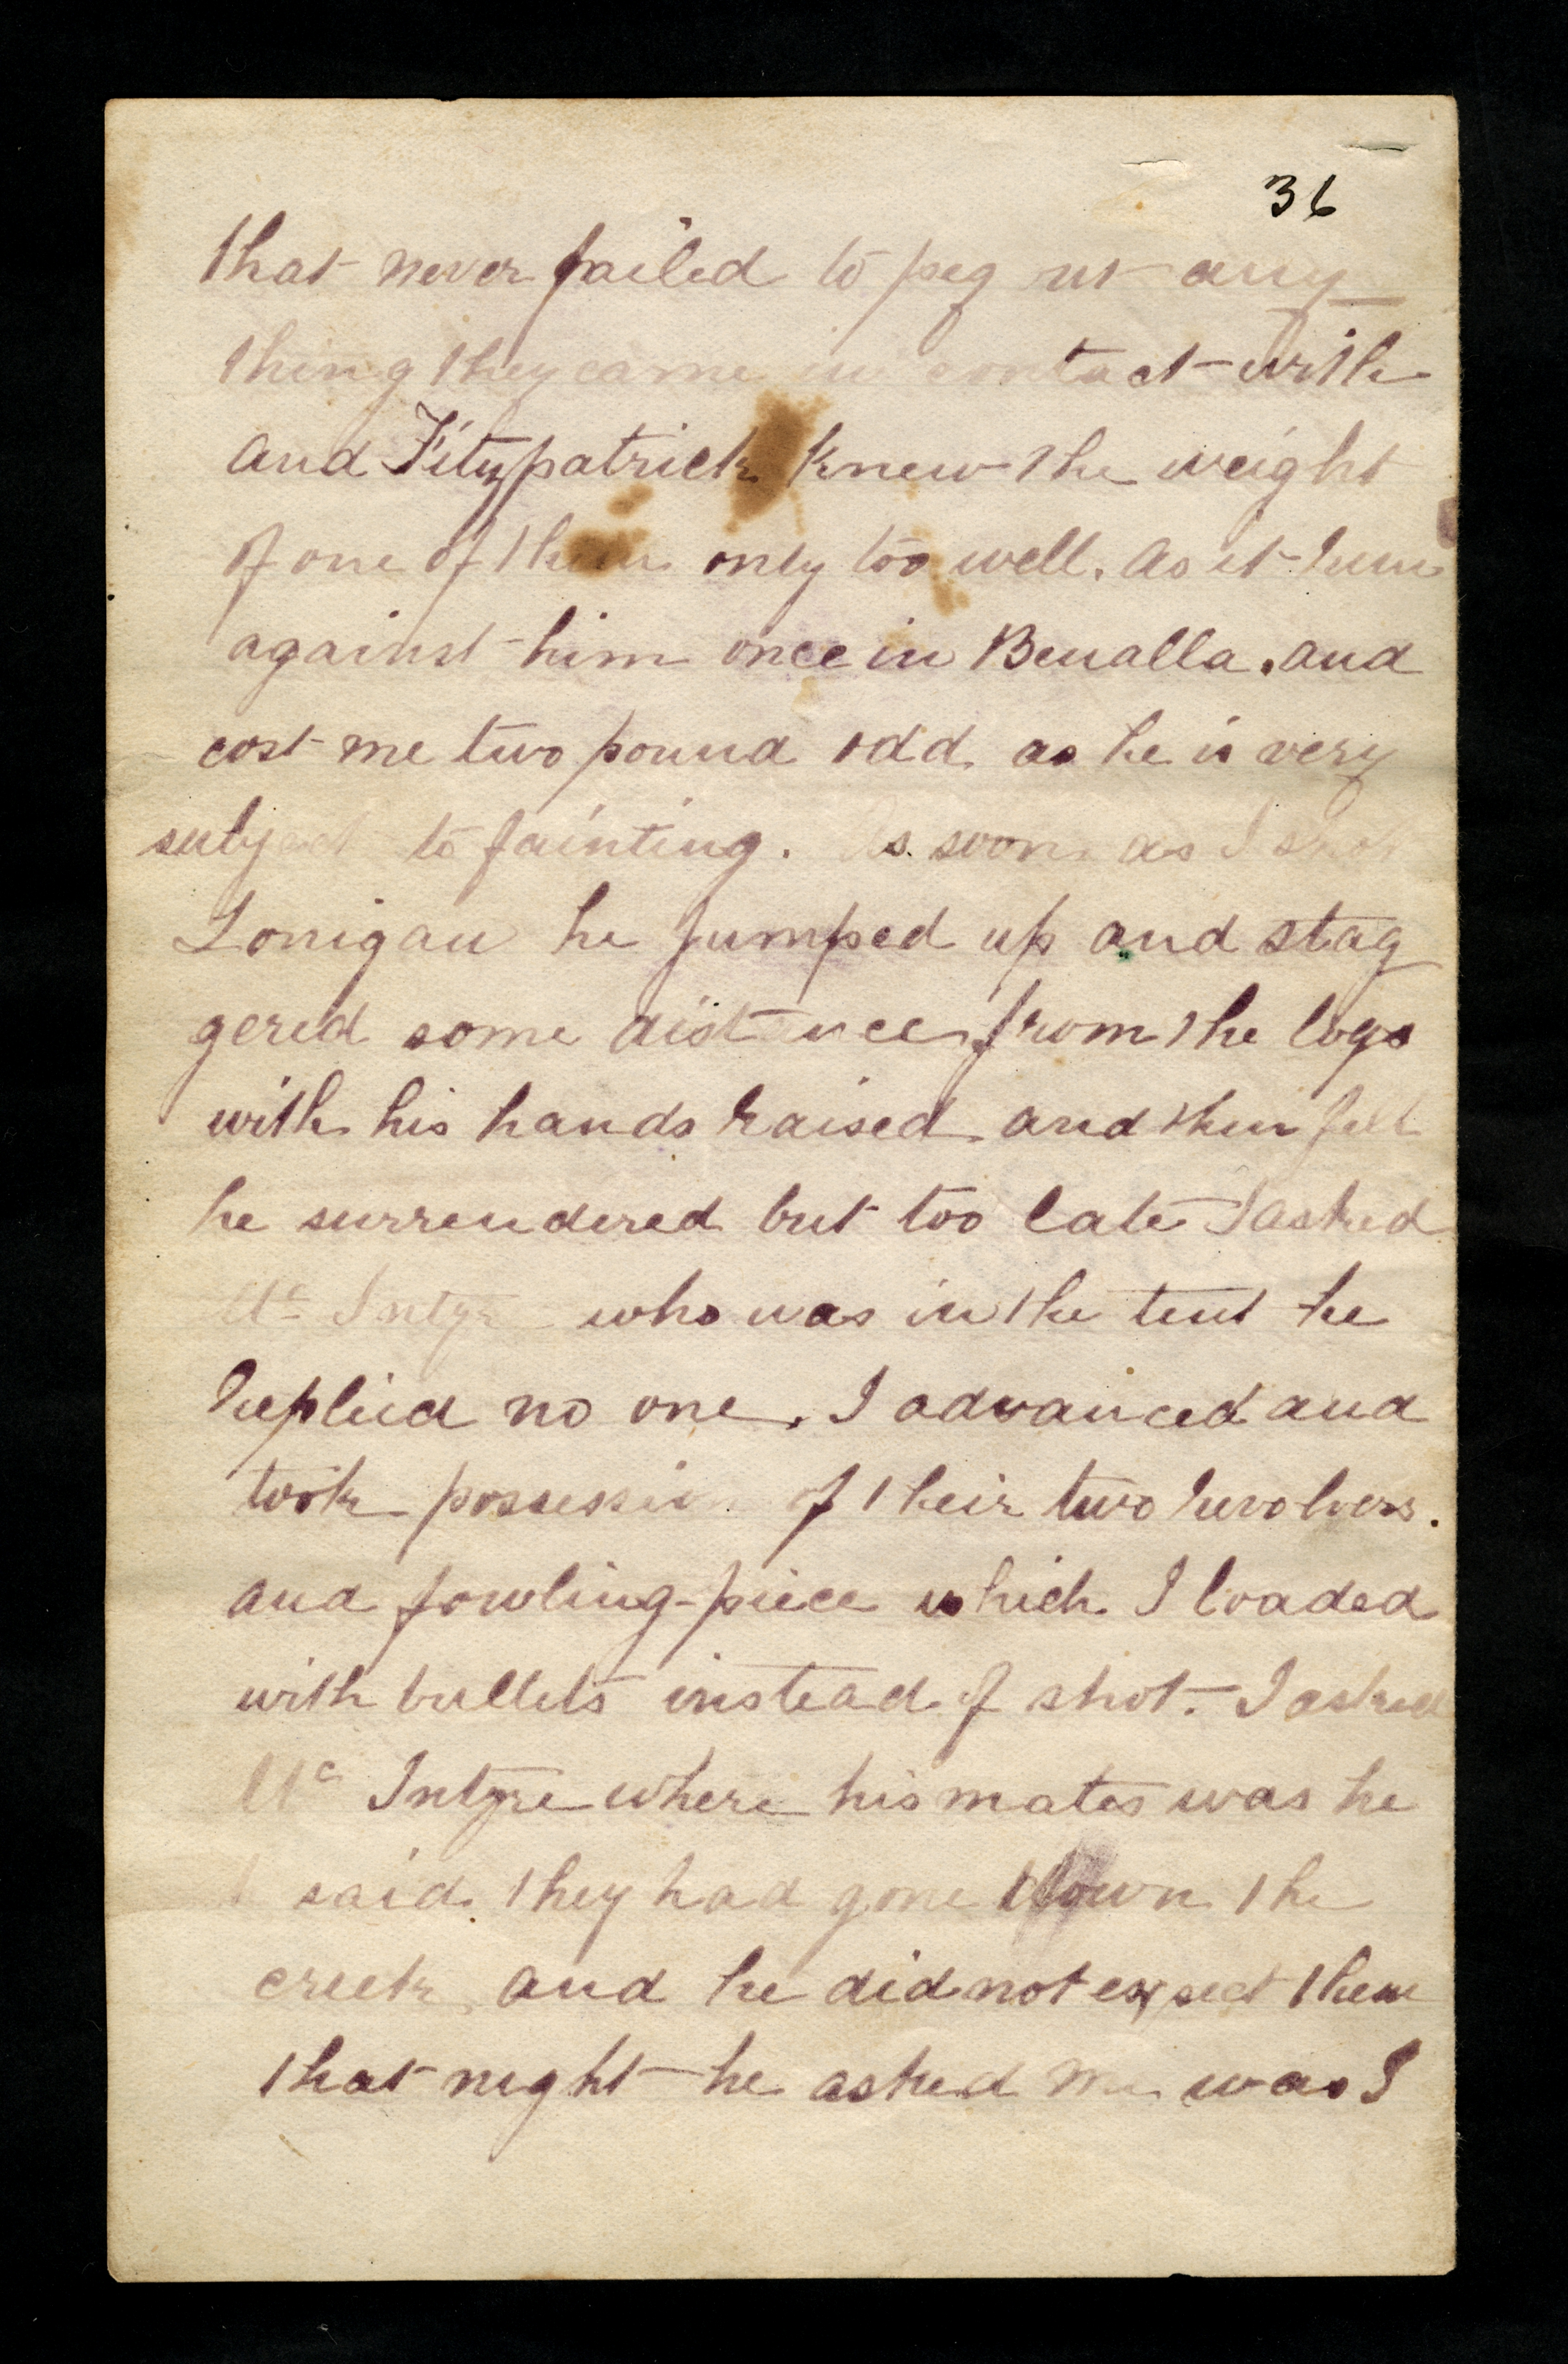 36
that never failed to peg ut any
thing they came in contact with
and Fitzpatrick knew the weight
of one of them only too well. as it hum
against him once in Benalla. and
cost me two pound odd as he is very
subject to fainting. As soon as I shot
Lonigan he jumped up and stag
gered some distance from the logs
with his hands raised and then fell
he surrendered but too late I asked
Mc Intyre who was in the tent he
replied no one. I advanced and
took possession of their two revolvers.
and fowling-piece which I loaded
with bullets instead of shot. I asked
Mc Intyre where his mates was he
said they had gone down the
creek and he did not expect them
that night he asked me was I